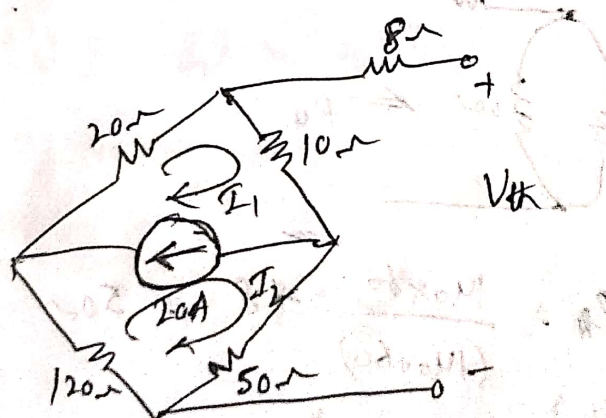 8Ω
+
20Ω
10Ω
I1
Vth
20A
I2
120Ω
50Ω
-